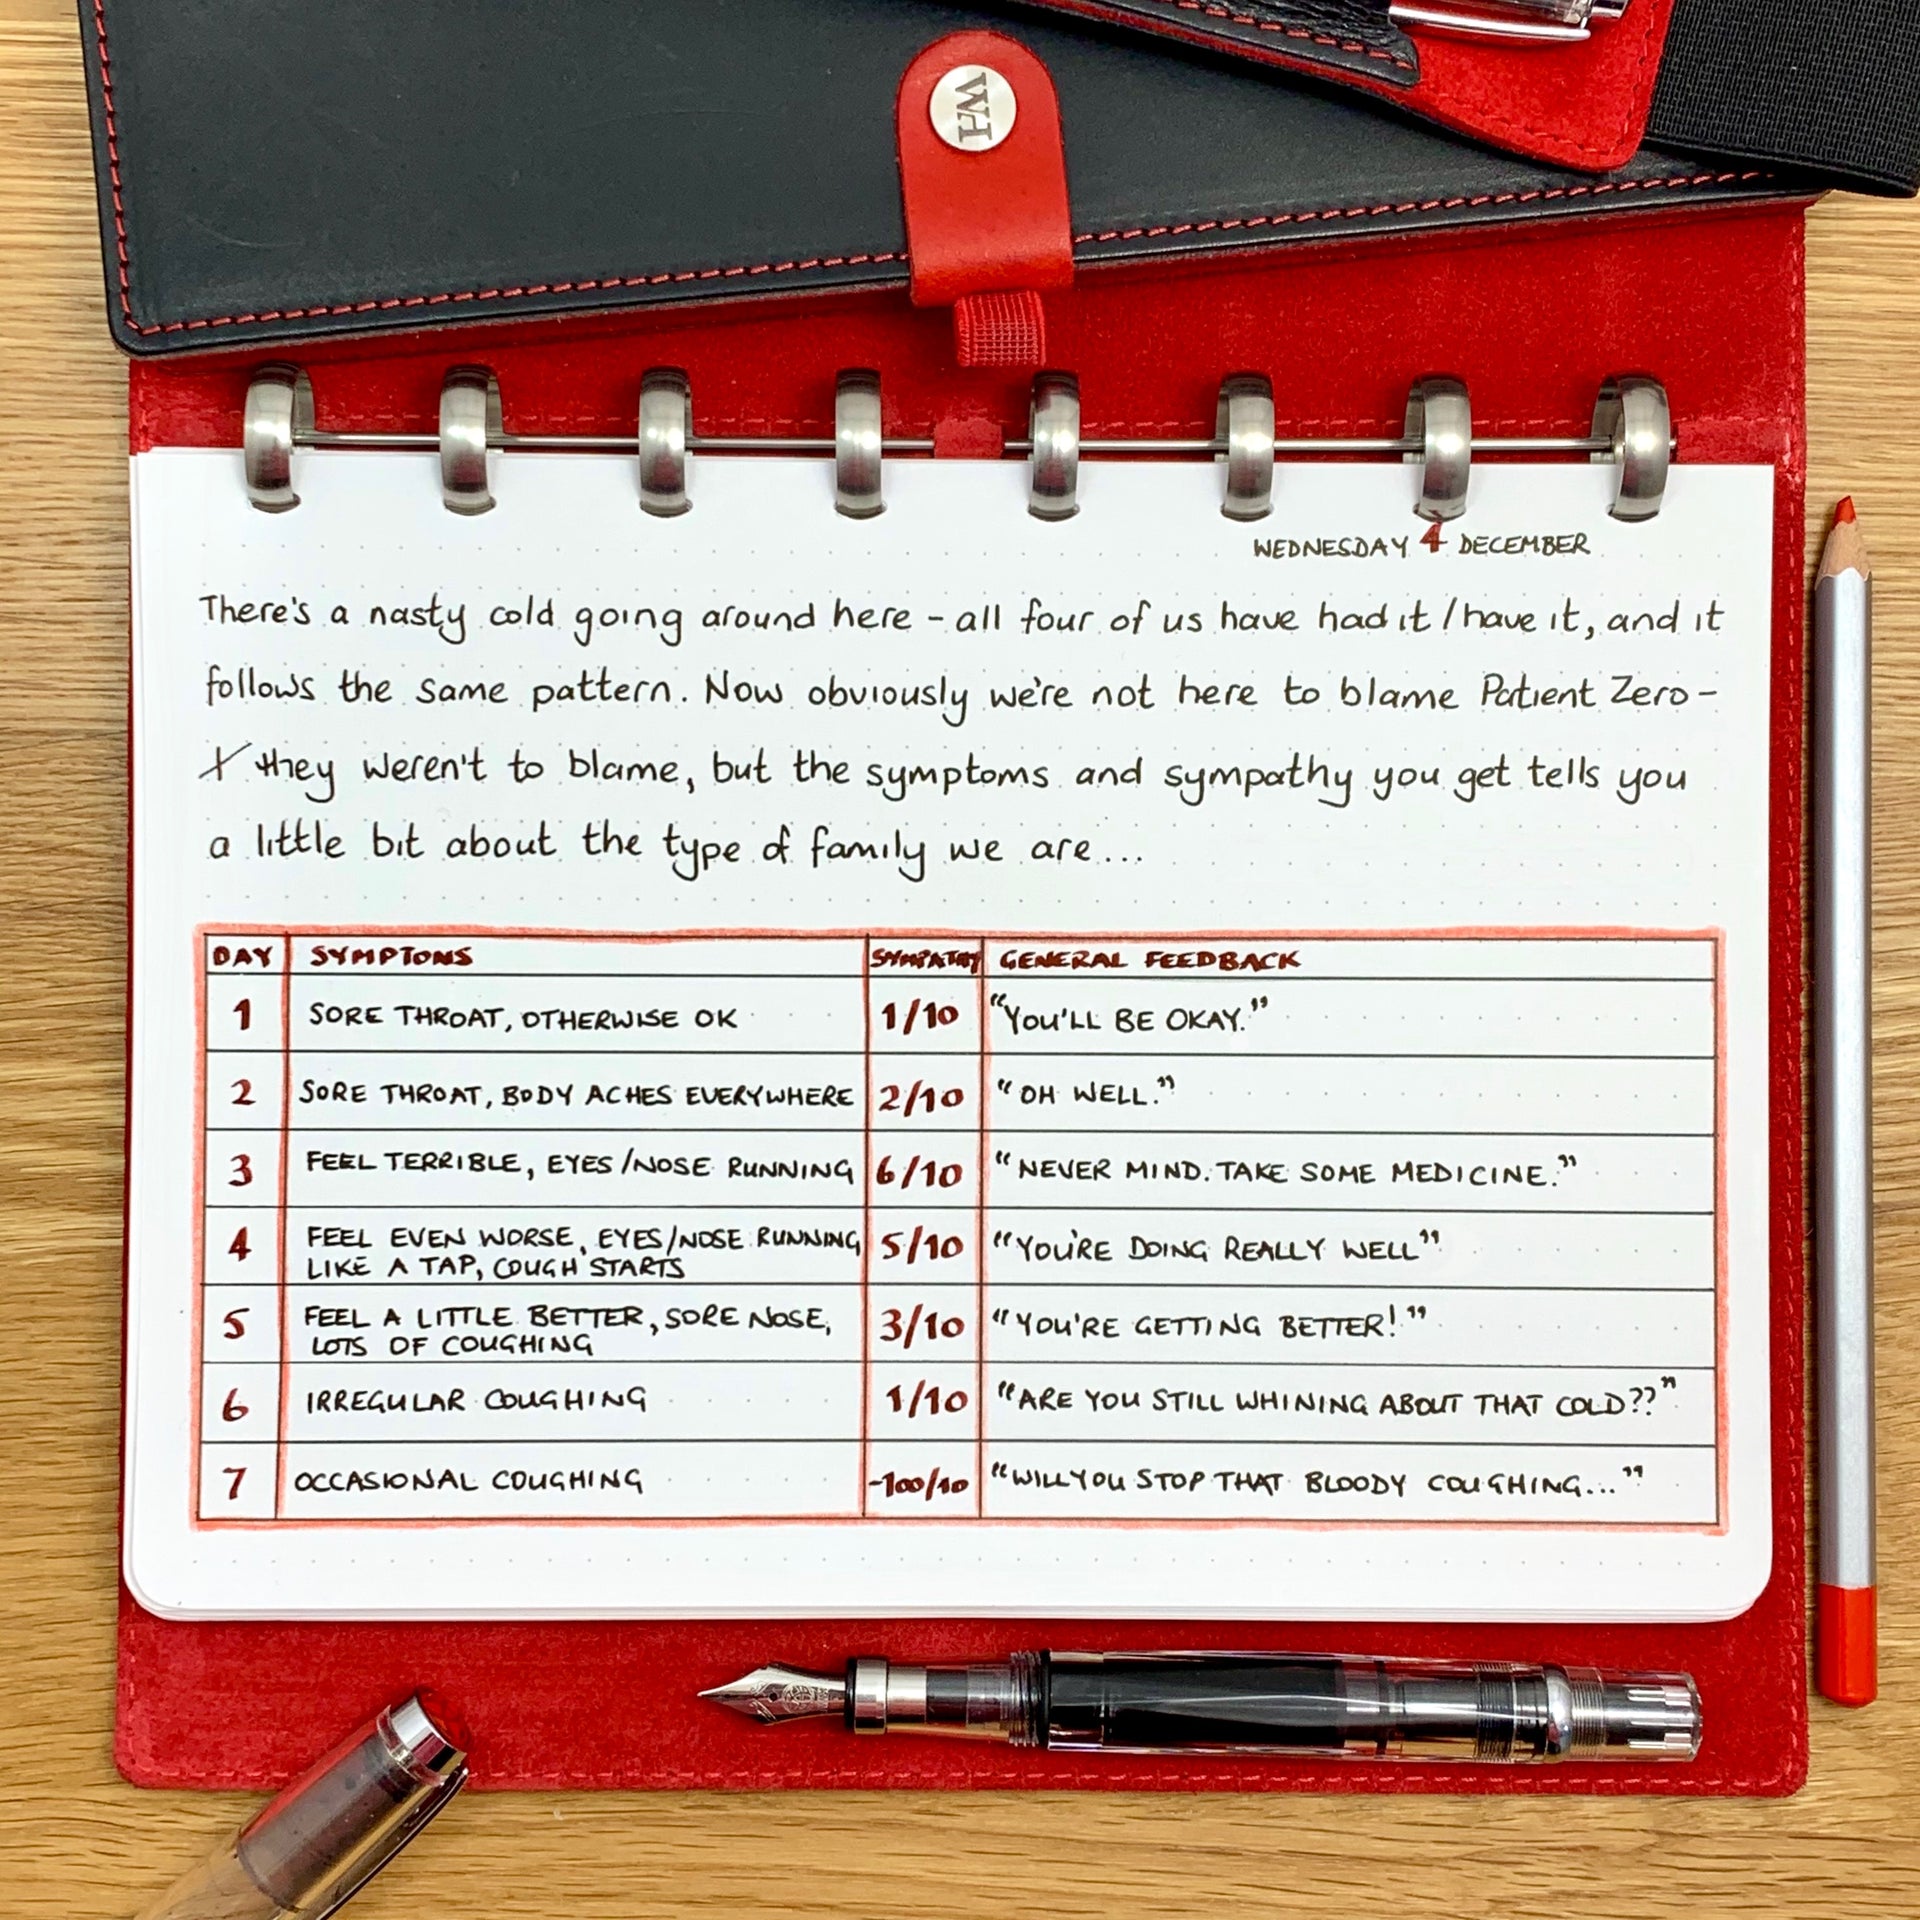 WH
WEDNESDAY 4 DECEMBER
There's a nasty cold going around here - all four of us have had it / have it, and it
follows the same pattern. Now obviously we're not here to blame Patient Zero -
they weren't to blame, but the symptoms and sympathy you get tells you
a little bit about the type of family we are...
DAY SYMPTOMS SYMPATHY GENERAL FEEDBACK
1 SORE THROAT, OTHERWISE OK 1/10 "YOU'LL BE OKAY."
2 SORE THROAT, BODY ACHES EVERYWHERE 2/10 "OH WELL."
3 FEEL TERRIBLE, EYES/NOSE RUNNING 6/10 "NEVER MIND. TAKE SOME MEDICINE."
4 FEEL EVEN WORSE, EYES/NOSE RUNNING 5/10 "YOU'RE DOING REALLY WELL"
LIKE A TAP, COUGH STARTS
5 FEEL A LITTLE BETTER, SORE NOSE, 3/10 "YOU'RE GETTING BETTER!"
LOTS OF COUGHING
6 IRREGULAR COUGHING 1/10 "ARE YOU STILL WHINING ABOUT THAT COLD??"
7 OCCASIONAL COUGHING -100/10 "WILL YOU STOP THAT BLOODY COUGHING..."